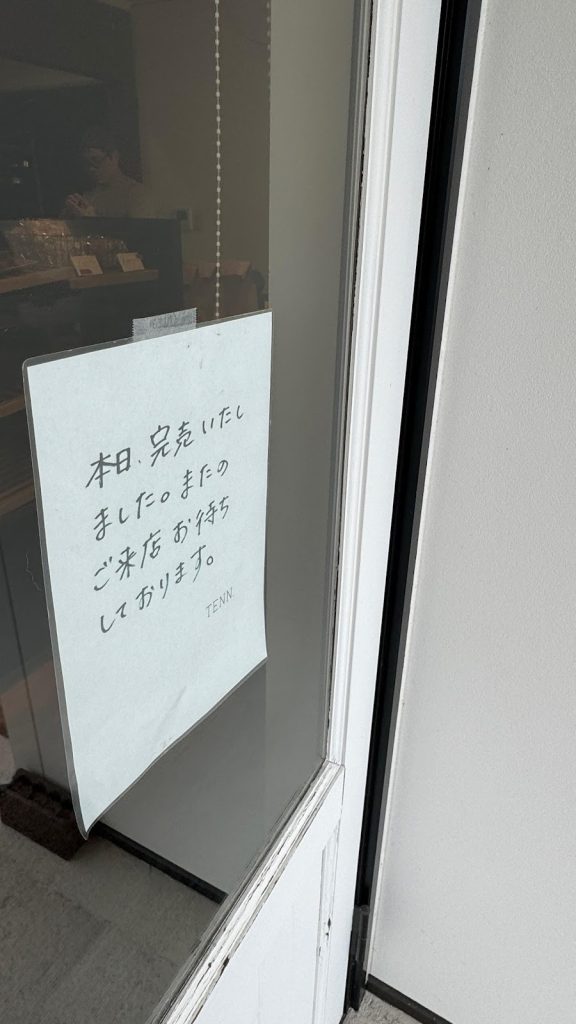 本日、完売いたし
ました。またの
ご来店お待ち
しております。
TENN.